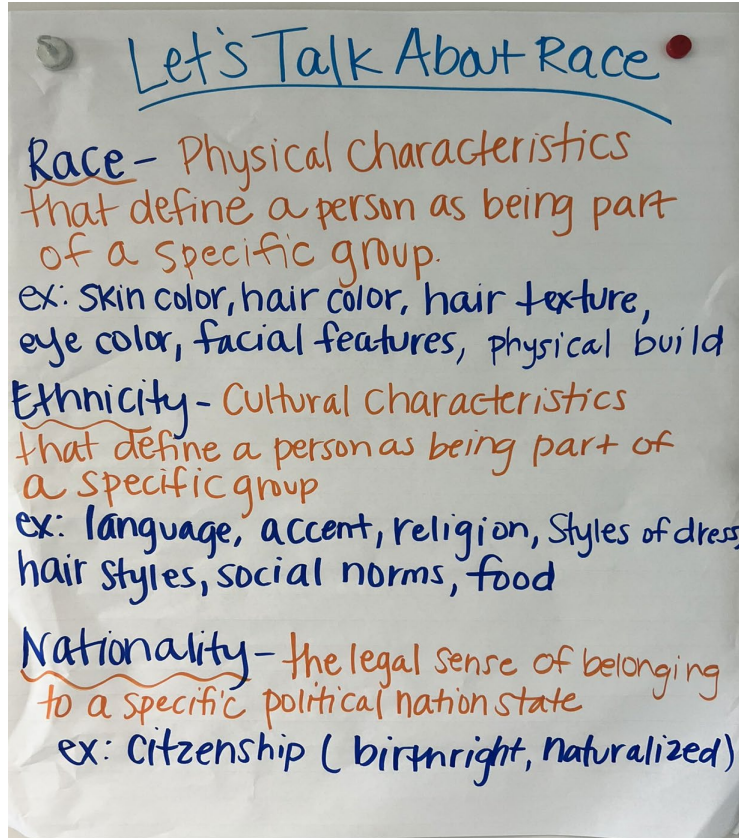 Let's Talk About Race
Race - Physical Characteristics
that define a person as being part
of a specific group.
ex: skin color, hair color, hair texture,
eye color, facial features, physical build
Ethnicity - Cultural Characteristics
that define a person as being part of
a specific group
ex: language, accent, religion, Styles of dress,
hair styles, social norms, food
Nationality - the legal sense of belonging
to a specific political nation state
ex: Citzenship (birthright, naturalized)